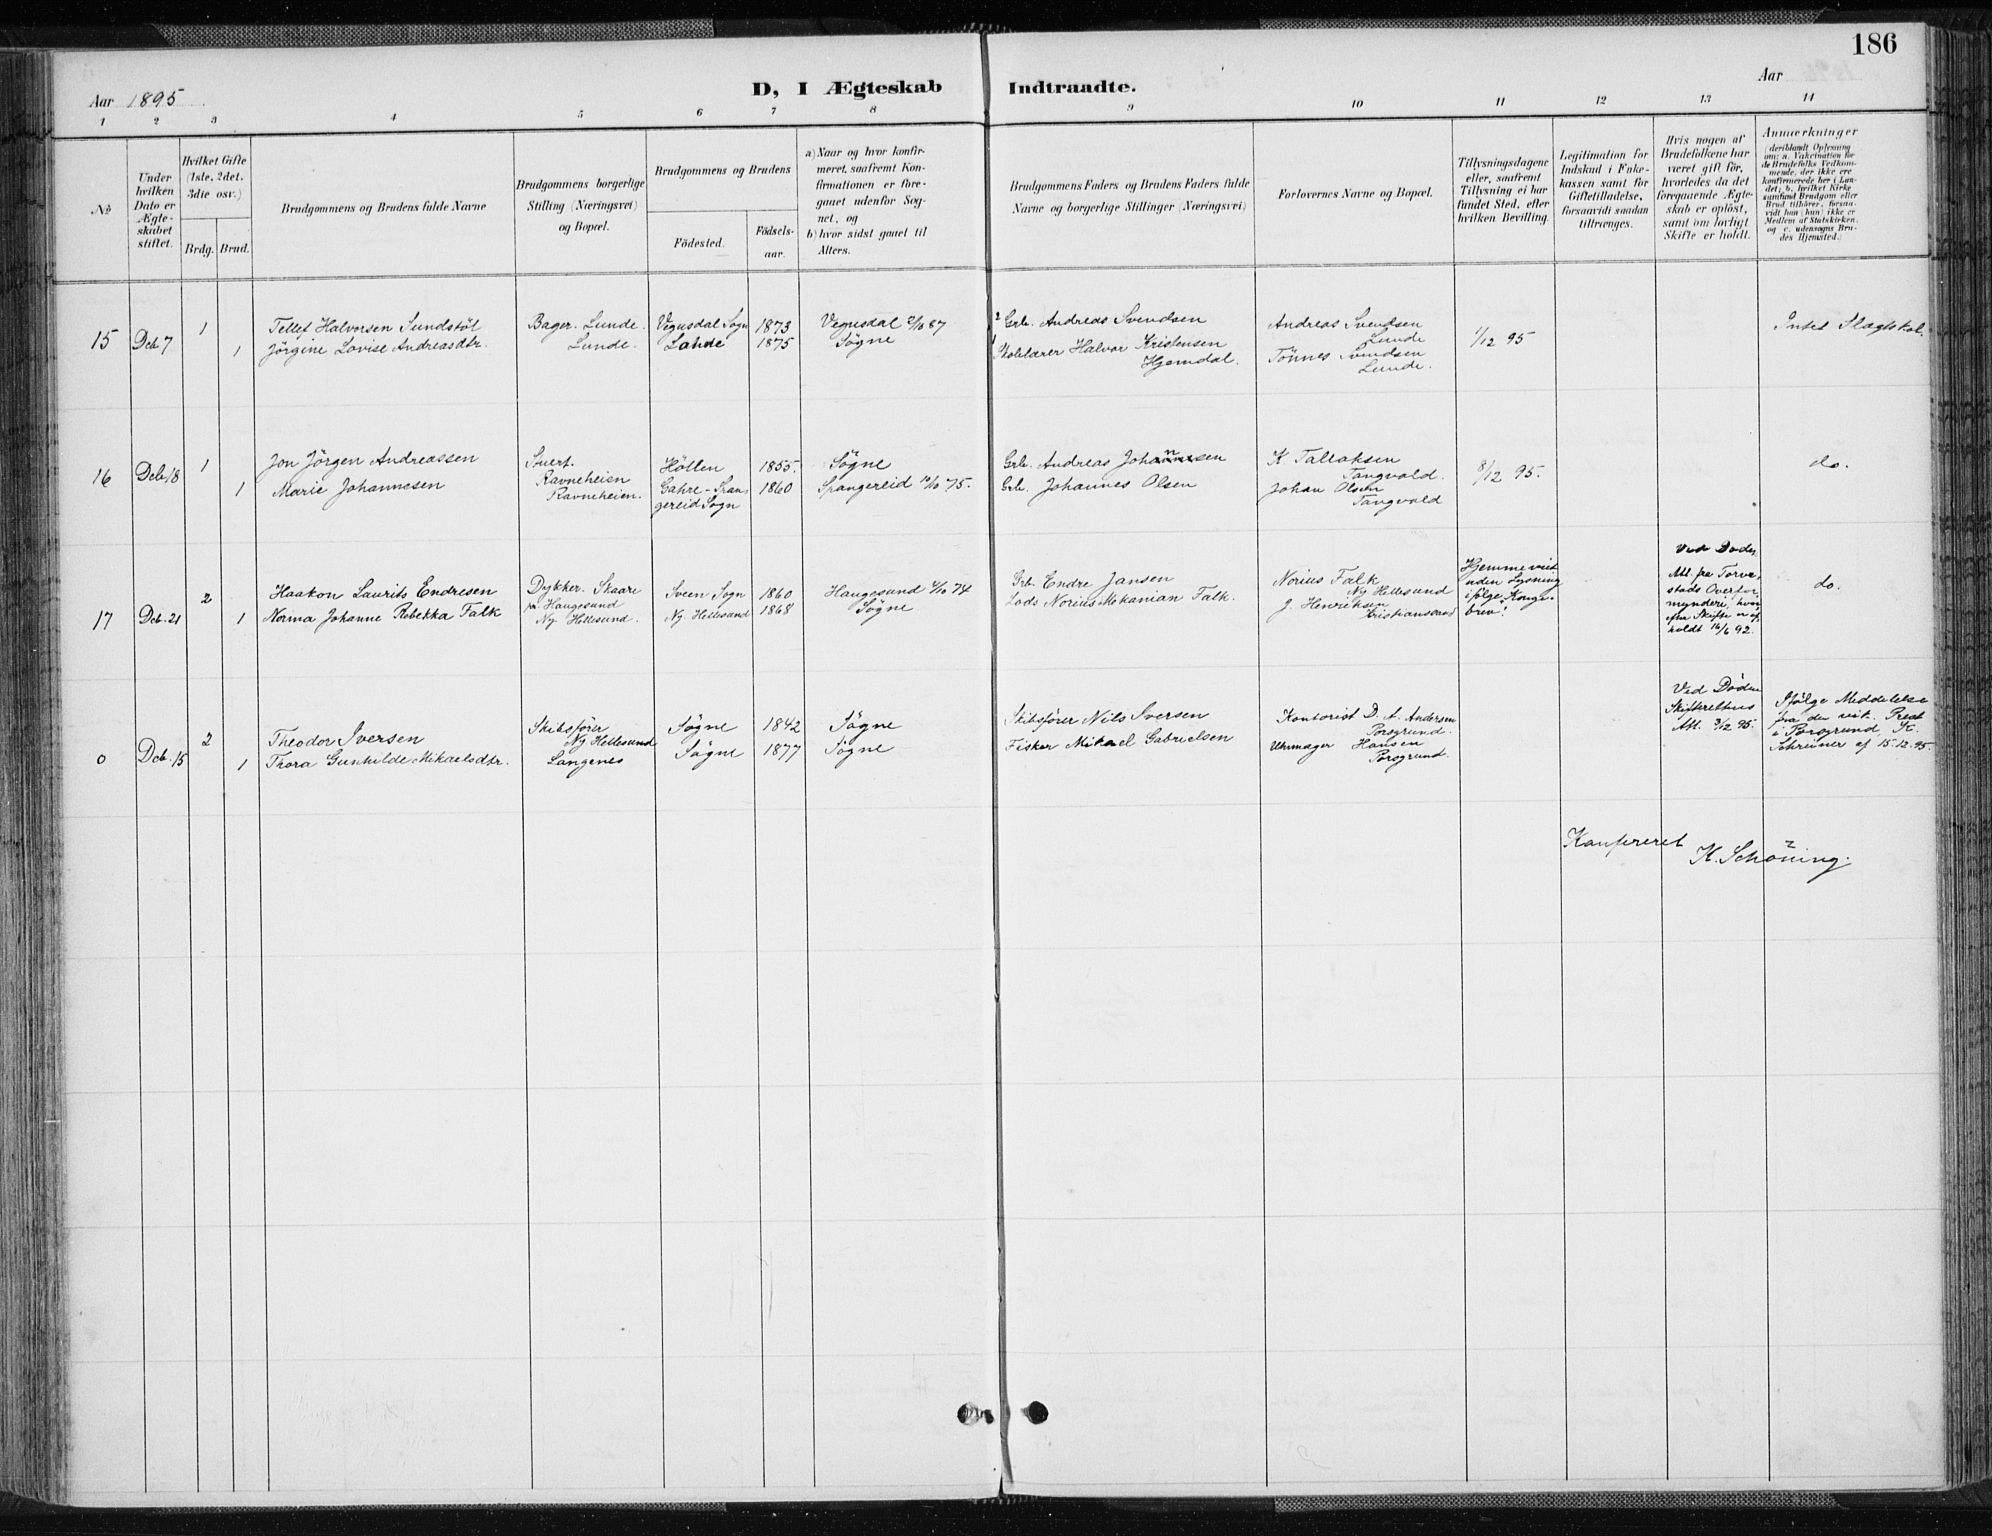 186
Aar 1895
D, I Ægteskab Indtraadte.
Aar
1 2 3 4 5 6 7 8 9 10 11 12 13 14
No
Under hvilken Dato er Ægte-skabet stiftet.
Hvilket Gifte (1ste, 2det. 3die osv.)
Brdg. Brud.
Brudgommens og Brudens fulde Navne
Brudgommens borgerlige Stilling (Næringsvei) og Bopæl.
Brudgommens og Brudens
Födested. Födsels-aar.
a) Naar og hvor konfir-meret, saafremt Kon-firmationen er fore-gaaet udenfor Sog-net, og
b) hvor sidst gaaet til Alters.
Brudgommens Faders og Brudens Faders fulde Navne og borgerlige Stillinger (Næringsvei)
Forlovernes Navne og Bopæl.
Tillysningsdagene eller, saafremt Tillysning ei har fundet Sted, efter hvilken Bevilling.
Legitimation for Indskud i Enke-kassen samt for Giftetilladelse, forsaavidt saadan tiltrænges.
Hvis nogen af Brudefolkene har været gift før, hvorledes da det foregaaende Ægte-skab er opløst, samt om lovligt Skifte er holdt.
Anmærkninger
(deriblandt Oplysning om: a. Vakcination for de Brudefolks Vedkom-mende, der ikke ere konfirmerede her i Lan-det; b. hvilket Kirke samfund Brudgom eller Brud tilhører, forsaa-vidt han (hun) ikke er Medlem af Statskirken; og c. udensogns Bru-des Hjemsted.)
15 Deb 7 1
1
Tellef Halvorsen Sundstöl
Jörgine Lovise Andreasdtr.
Bager. Lunde.
Lunde.
Vegusdal Sogn 1873
Lunde 1875
Vegusdal 2/10 87
Sögne
2 Grb. Andreas Svendsen
1 Skolelærer Halvor Kristensen
Hjemdal.
Andreas Svendsen
Lunde
Tönnes Svendsen
Lunde.
1/12 95
Intet Slagtskab.
16 Deb 18 1
1
Jon Jörgen Andreassen
Marie Johannesen
Ravneheien
Ravneheien.
Höllen 1855
Gahre - Span-
gereid Sogn 1860
Sögne
Spangereid 10/10 75.
Grb. Andreas Johansen
Grb. Johannes Olsen
K. Tallaksen
Tangvald.
Johan Olsen
Tangvald
8/12 95.
do.
17 Deb. 21 2
1
Haakon Laurits Endresen
Norma Johanne Rebekka Falk
Dykker. Skaare
pr Haugesund
Ny Hellesund.
Sveen Sogn 1860
Ny Hellesund 1868
Haugesund 4/10 74
Sögne
Grb. Endre Jansen
Lods Norius Mekanian Falk.
Norius Falk
Ny Hellesund
J. Henriksen
Kristianssand
Hjemmeviet
uden Lysning
ifölge Konge-
brev!
Ved Döden
Att. fra Torve-
stads Overfor-
mynderi, hvor-
efter Skifte er af-
holdt 16/6 92.
do.
0 Deb. 15 2
1
Theodor Iversen
Thora Gunhilde Mikaelsdtr.
Skibsförer
Ny Hellesund
Langenes
Sögne 1842
Sögne 1877
Sögne
Sögne
Skibsförer Nils Iversen
Fisker Mikael Gabrielsen
Kontorist D. A. Andersen
Porsgrund.
Uhrmager Hansen
Porsgrund.
Ved Döden
Skifterettens
Att. 3/12 95.
Ifölge Meddelelse
fra den vik. Prest
i Porsgrund, K.
Schreiner af 15.12.95.
Konfereret
K. Schöning.